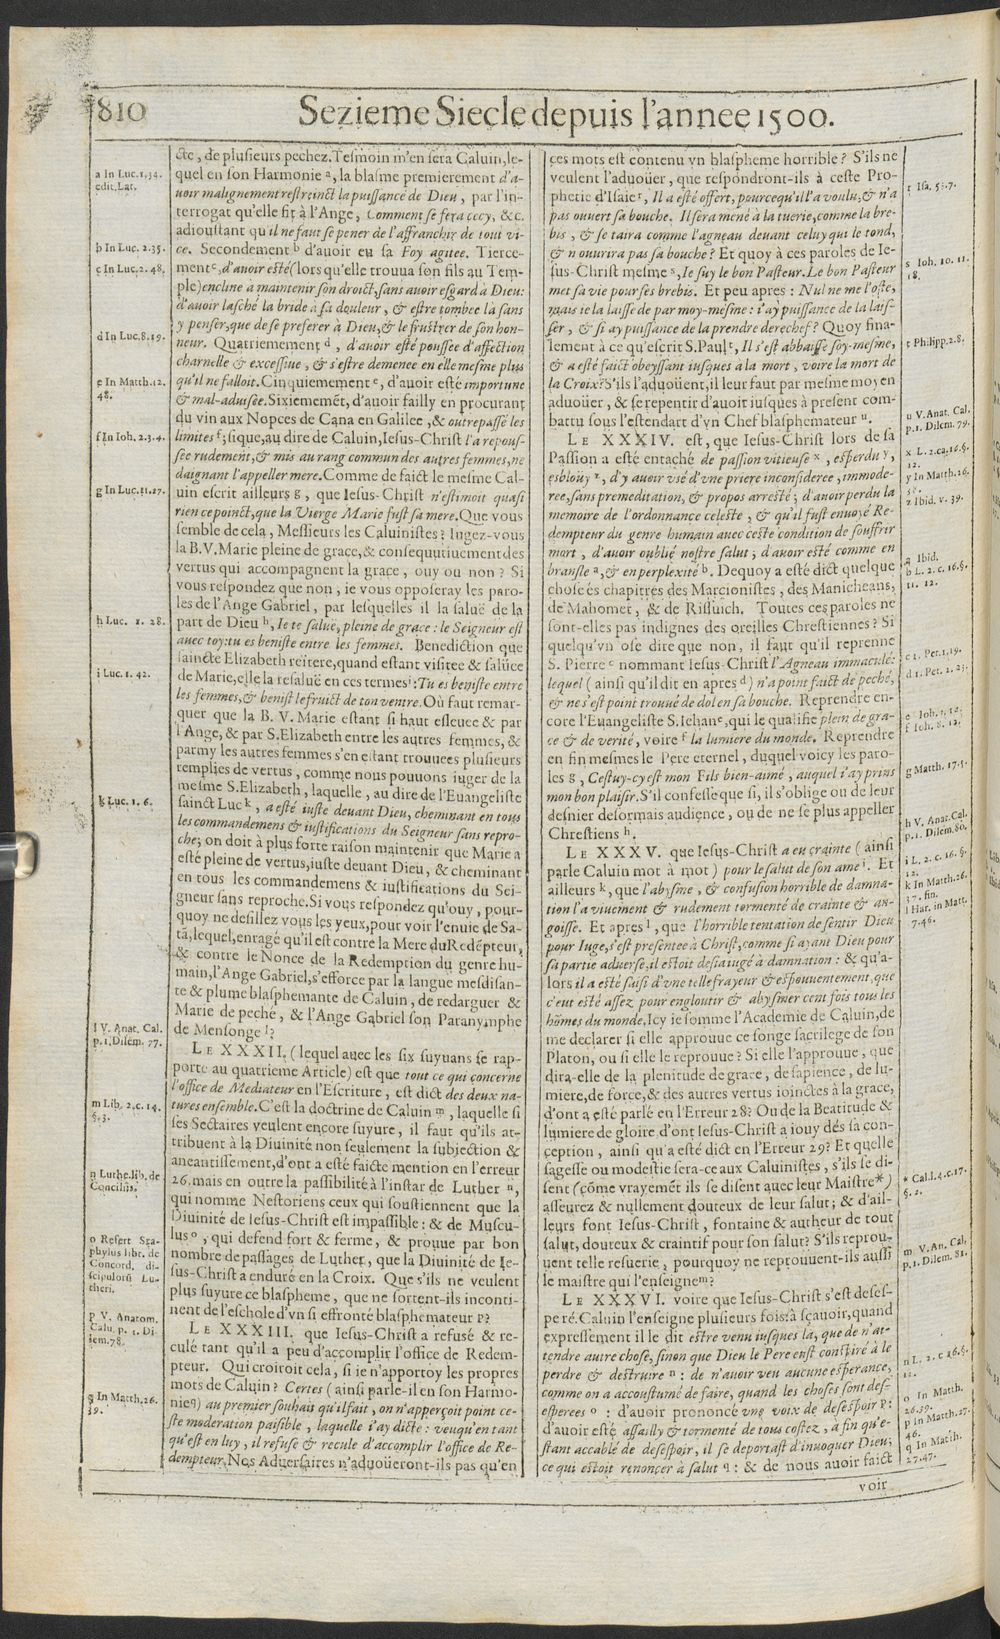 810
Sezieme Siecle depuis l'annee 1500.
cte, de plusieurs pechez. Tesmoin m'en sera Caluin, le-
quel en son Harmonie a, la blasme premierement d'a-
uoir malignement restreinct la puissance de Dieu, par l'in-
terrogat qu'elle fit à l'Ange, Comment se fera cecy, &c.
adioustant qu'il ne faut se pener de l'affranchir de tout vi-
ce. Secondement b d'auoir eu sa Foy agitee. Tierce-
ment c, d'auoir esté (lors qu'elle trouua son fils au Tem-
ple) encline à maintenir son droict, sans auoir esgard à Dieu:
d'auoir lasché la bride à sa douleur, & estre tombee là sans
y penser, que de se preferer à Dieu, & le frustrer de son hon-
neur. Quatriemement d, d'auoir esté poussee d'affection
charnelle & excessiue, & s'estre demenee en elle mesme plus
qu'il ne falloit. Cinquiemement e, d'auoir esté importune
& mal-aduisée. Sixiememẽt, d'auoir failly en procurant
du vin aux Nopces de Cana en Galilee, & outrepassé les
limites f; si que, au dire de Caluin, Iesus-Christ l'a repous-
sée rudement, & mis au rang commun des autres femmes, ne
daignant l'appeller mere. Comme de faict le mesme Cal-
uin escrit ailleurs g, que Iesus-Christ n'estimoit quasi
rien ce poinct, que la Vierge Marie fust sa mere. Que vous
semble de cela, Messieurs les Caluinistes? Iugez-vous
la B. V. Marie pleine de grace, & consequutiuement des
vertus qui accompagnent la grace, ouy ou non? Si
vous respondez que non, ie vous opposeray les paro-
les de l'Ange Gabriel, par lesquelles il la saluë de la
part de Dieu h, Ie te saluë, pleine de grace: le Seigneur est
auec toy: tu es beniste entre les femmes. Benediction que
saincte Elizabeth reïtere, quand estant visitee & salüee
de Marie, elle la resaluë en ces termes i: Tu es beniste entre
les femmes, & benist le fruict de ton ventre. Où faut remar-
quer que la B. V. Marie estant si haut esleuee & par
l'Ange, & par S. Elizabeth entre les autres femmes, &
parmy les autres femmes s'en estant trouuees plusieurs
remplies de vertus, comme nous pouuons iuger de la
mesme S. Elizabeth, laquelle, au dire de l'Euangeliste
sainct Luc k, a esté iuste deuant Dieu, cheminant en tous
les commandemens & iustifications du Seigneur sans repro-
che; on doit à plus forte raison maintenir que Marie a
esté pleine de vertus, iuste deuant Dieu, & cheminant
en tous les commandemens & iustifications du Sei-
gneur sans reproche. Si vous respondez qu'ouy, pour-
quoy ne desillez vous les yeux, pour voir l'enuie de Sa-
tã, lequel, enragé qu'il est contre la Mere du Redẽpteur,
& contre le Nonce de la Redemption du genre hu-
main, l'Ange Gabriel, s'efforce par la langue mesdisan-
te & plume blasphemante de Caluin, de redarguer &
Marie de peché, & l'Ange Gabriel son Paranymphe
de Mensonge l?
LE XXXII. (lequel auec les six suyuans se rap-
porte au quatrieme Article) est que tout ce qui concerne
l'office de Mediateur en l'Escriture, est dict des deux na-
tures ensemble. C'est la doctrine de Caluin m, laquelle si
ses Sectaires veulent encore suyure, il faut qu'ils at-
tribuent à la Diuinité non seulement la subiection &
aneantissement, d'ont a esté faicte mention en l'erreur
26. mais en outre la passibilité à l'instar de Luther n,
qui nomme Nestoriens ceux qui soustiennent que la
Diuinité de Iesus-Christ est impassible: & de Muscu-
lus o, qui defend fort & ferme, & prouue par bon
nombre de passages de Luther, que la Diuinité de Ie-
sus-Christ a enduré en la Croix. Que s'ils ne veulent
plus suyure ce blaspheme, que ne sortent-ils inconti-
nent de l'eschole d'vn si effronté blasphemateur p?
LE XXXIII. que Iesus-Christ a refusé & re-
culé tant qu'il a peu d'accomplir l'office de Redem-
pteur. Qui croiroit cela, si ie n'apportoy les propres
mots de Caluin? Certes (ainsi parle-il en son Harmo-
nie q) au premier souhait qu'il fait, on n'apperçoit point ce-
ste moderation paisible, laquelle i'ay dicte: veu qu'en tant
qu'est en luy, il refuse & recule d'accomplir l'office de Re-
dempteur. Nos Aduersaires n'aduoüeront-ils pas qu'en
a In Luc. 1. 34.
edit. Lat.
b In Luc. 2. 35.
c In Luc. 2. 48.
d In Luc. 8. 19.
e In Matth. 12.
48.
f In Ioh. 2. 3. 4.
g In Luc. 11. 27.
h Luc. 1. 28.
i Luc. 1. 42.
k Luc. 1. 6.
l V. Anat. Cal.
p. 1. Dilem. 77.
m Lib. 2. c. 14.
§. 3.
n Luthe. lib. de
Conciliis.
o Refert Sta-
phylus libr. de
Concord. di-
scipulorū Lu-
theri.
p V. Anatom.
Calu. p. 1. Di-
lem. 78.
q In Matth. 26.
39.
ces mots est contenu vn blaspheme horrible? S'ils ne
veulent l'aduoüer, que respondront-ils à ceste Pro-
phetie d'Isaie r, Il a esté offert, pource qu'il l'a voulu, & n'a
pas ouuert sa bouche. Il sera mené à la tuerie, comme la bre-
bis, & se taira comme l'agneau deuant celuy qui le tond,
& n'ouurira pas sa bouche? Et quoy à ces paroles de Ie-
sus-Christ mesme s, Ie suy le bon Pasteur. Le bon Pasteur
met sa vie pour ses brebis. Et peu apres: Nul ne me l'oste,
mais ie la laisse de par moy-mesme: i'ay puissance de la lais-
ser, & si ay puissance de la prendre derechef? Quoy fina-
lement à ce qu'escrit S. Paul t, Il s'est abbaissé soy-mesme,
& a esté faict obeyssant iusques à la mort, voire la mort de
la Croix? S'ils l'aduoüent, il leur faut par mesme moyen
aduoüer, & se repentir d'auoir iusques à present com-
battu sous l'estendart d'vn Chef blasphemateur u.
LE XXXIV. est, que Iesus-Christ lors de sa
Passion a esté entaché de passion vitieuse x, esperdu y,
esblouy z, d'y auoir vsé d'vne priere inconsideree, immode-
ree, sans premeditation, & propos arresté; d'auoir perdu la
memoire de l'ordonnance celeste, & qu'il fust enuoyé Re-
dempteur du genre humain auec ceste condition de souffrir
mort, d'auoir oublié nostre salut; d'auoir esté comme en
bransle a, & en perplexité b. Dequoy a esté dict quelque
chose és chapitres des Marcionistes, des Manicheans,
de Mahomet, & de Rissuich. Toutes ces paroles ne
sont-elles pas indignes des oreilles Chrestiennes? Si
quelqu'vn ose dire que non, il faut qu'il reprenne
S. Pierre c nommant Iesus-Christ l'Agneau immaculé:
lequel (ainsi qu'il dit en apres d) n'a point faict de peché,
& ne s'est point trouué de dol en sa bouche. Reprendre en-
core l'Euangeliste S. Iehan e, qui le qualifie plein de gra-
ce & de verité, voire f la lumiere du monde. Reprendre
en fin mesmes le Pere eternel, duquel voicy les paro-
les g, Cestuy-cy est mon Fils bien-aimé, auquel i'ay prins
mon bon plaisir. S'il confesse que si, il s'oblige ou de leur
desnier desormais audience, ou de ne se plus appeller
Chrestiens h.
LE XXXV. que Iesus-Christ a eu crainte (ainsi
parle Caluin mot à mot) pour le salut de son ame i. Et
ailleurs k, que l'abysme, & confusion horrible de damna-
tion l'a viuement & rudement tormenté de crainte & an-
goisse. Et apres l, que l'horrible tentation de sentir Dieu
pour Iuge, s'est presentee à Christ, comme si ayant Dieu pour
sa partie aduerse, il estoit desia iugé à damnation: & qu'a-
lors il a esté saisi d'vne telle frayeur & espouuentement, que
c'eut esté assez pour engloutir & abysmer cent fois tous les
hõmes du monde. Icy ie somme l'Academie de Caluin, de
me declarer si elle approuue ce songe sacrilege de son
Platon, ou si elle le reprouue? Si elle l'approuue, que
dira-elle de la plenitude de grace, de sapience, de lu-
miere, de force, & des autres vertus ioinctes à la grace,
d'ont a esté parlé en l'Erreur 28? Ou de la Beatitude &
lumiere de gloire, d'ont Iesus-Christ a iouy dés sa con-
ception, ainsi qu'a esté dict en l'Erreur 29? Et quelle
sagesse ou modestie sera-ce aux Caluinistes, s'ils se di-
sent (cõme vrayemẽt ils se disent auec leur Maistre*)
asseurez & nullement douteux de leur salut; & d'ail-
leurs font Iesus-Christ, fontaine & autheur de tout
salut, douteux & craintif pour son salut? S'ils reprou-
uent telle resuerie, pourquoy ne reprouuent-ils aussi
le maistre qui l'enseigne m?
LE XXXVI. voire que Iesus-Christ s'est deses-
peré. Caluin l'enseigne plusieurs fois: à sçauoir, quand
expressement il le dit estre venu iusques là, que de n'at-
tendre autre chose, sinon que Dieu le Pere eust conspiré à le
perdre & destruire n: de n'auoir veu aucune esperance,
comme on a accoustumé de faire, quand les choses sont des-
esperees o: d'auoir prononcé vne voix de desespoir p:
d'auoir esté assailly & tormenté de tous costez, à fin qu'e-
stant accablé de desespoir, il se deportast d'inuoquer Dieu;
ce qui estoit renoncer à salut q: & de nous auoir faict
voir
r Isa. 53. 7.
s Ioh. 10. 11.
18.
t Philipp. 2. 8.
u V. Anat. Cal.
p. 1. Dilem. 79.
x L. 2. ca. 16. §.
12.
y In Matth. 26.
z Ibid. v. 39.
a Ibid.
b L. 2. c. 16. §.
11. 12.
c 1. Pet. 1. 19.
d 1. Pet. 2. 23.
e Ioh. 1. 12.
f Ioh. 8. 12.
g Matth. 17. 5.
h V. Anat. Cal.
p. 1. Dilem. 80.
i L. 2. c. 16. §.
12.
k In Matth. 26.
37. fin.
l Har. in Matt.
7. 46.
* Cal. l. 4. c. 17.
§. 2.
m V. An. Cal.
p. 1. Dilem. 81.
n L. 2. c 16. §.
12.
o In Matth.
26. 39.
p In Matth. 27.
46.
q In Matth.
27. 47.